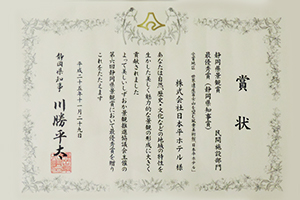 賞状
静岡県景観賞
最優秀賞(静岡県知事賞)
民間施設部門
株式会社日本平ホテル 様
あなたは自然、歴史・文化などの地域の特性を
生かした美しく魅力的な景観の形成に大きく
貢献されました
よって美しいしずおか景観推進協議会主催の
第六回静岡県景観賞において最優秀賞を贈り
これをたたえます
平成二十五年十一月二十九日
静岡県知事 川勝平太